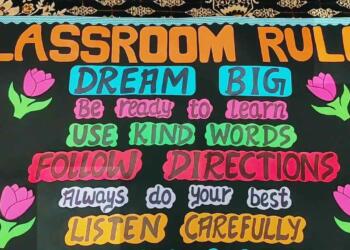 LASSROOM RUL
DREAM BIG
Be ready to learn
USE KIND WORDS
FOLLOW DIRECTIONS
Always do your best
LISTEN CAREFULLY